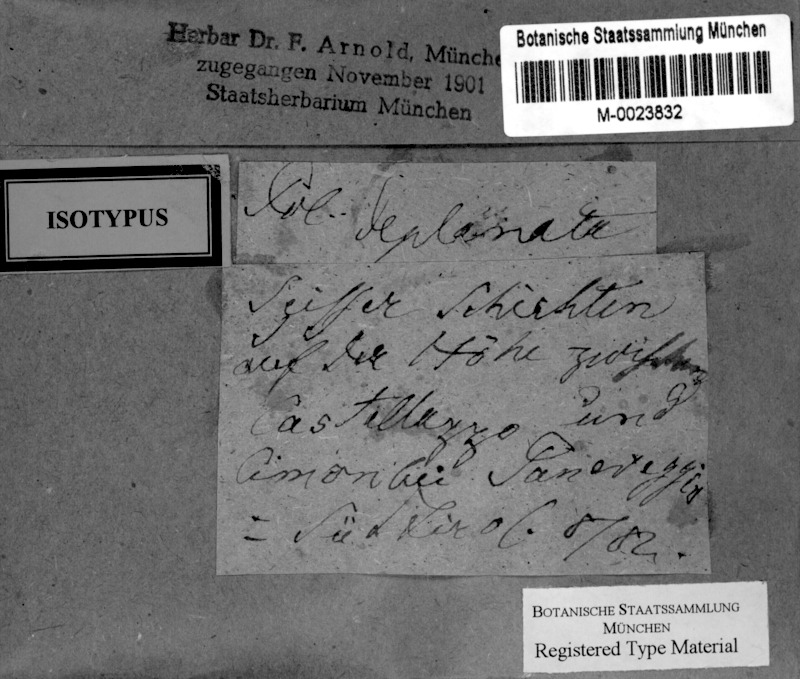 Herbar Dr. F. Arnold, Münche
zugegangen November 1901
Staatsherbarium München
Botanische Staatssammlung München
M-0023832
ISOTYPUS
deplanata
Seisser Schichten
auf der Höhe zwischen
Castellazzo und
Cimon bei Paneveggio
= Südtirol. 8/82.
BOTANISCHE STAATSSAMMLUNG
MÜNCHEN
Registered Type Material